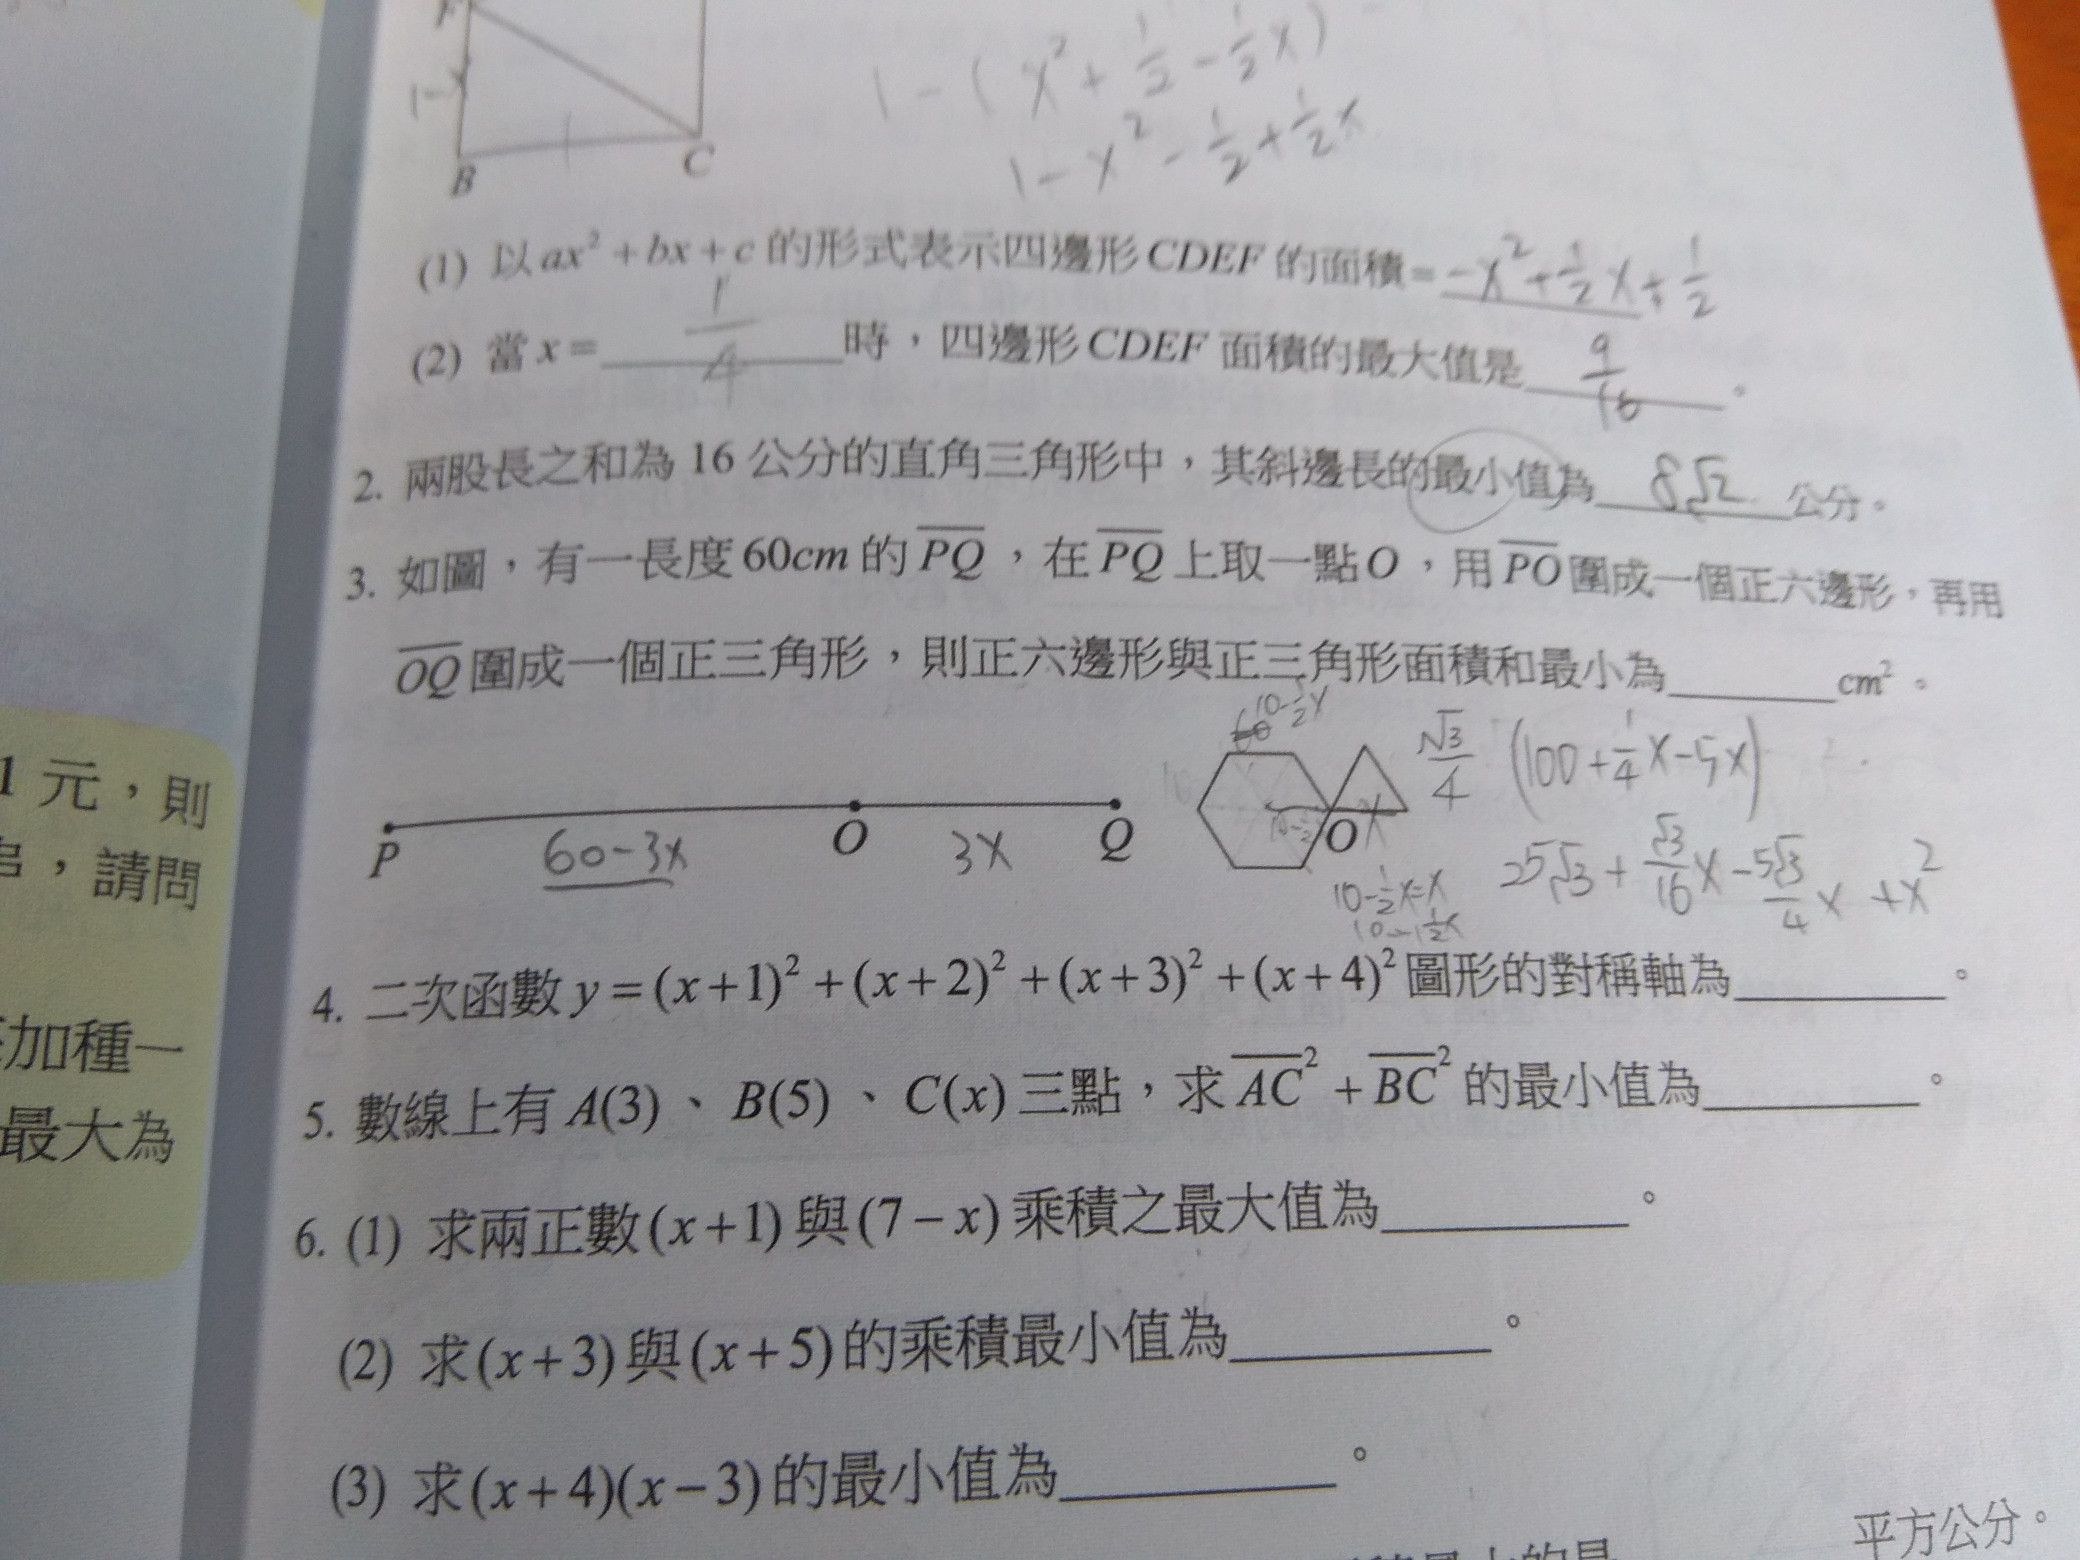 1-x
B
C
1-(x²+1/2-1/2x)
1-x²-1/2+1/2x
(1) 以ax²+bx+c的形式表示四邊形CDEF的面積=-x²+1/2x+1/2
(2) 當x=1/4時，四邊形CDEF面積的最大值是9/16。
2. 兩股長之和為16公分的直角三角形中，其斜邊長的最小值為8√2公分。
3. 如圖，有一長度60cm的PQ，在PQ上取一點O，用PO圍成一個正六邊形，再用
OQ圍成一個正三角形，則正六邊形與正三角形面積和最小為______cm²。
10-1/2x
√3/4 (100+1/4x-5x)
P 60-3x O 3x Q
O x
25√3+√3/16x-5√3/4x+x²
10-1/2x=x
4. 二次函數y=(x+1)²+(x+2)²+(x+3)²+(x+4)²圖形的對稱軸為______。
5. 數線上有A(3)、B(5)、C(x)三點，求AC²+BC²的最小值為______。
6. (1) 求兩正數(x+1)與(7-x)乘積之最大值為______。
(2) 求(x+3)與(x+5)的乘積最小值為______。
(3) 求(x+4)(x-3)的最小值為______。
平方公分。
1元，則
，請問
加種一
最大為